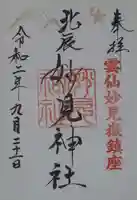 奉拝
雲仙妙見嶽鎮座
北辰
妙見神社
令和二年九月二十二日